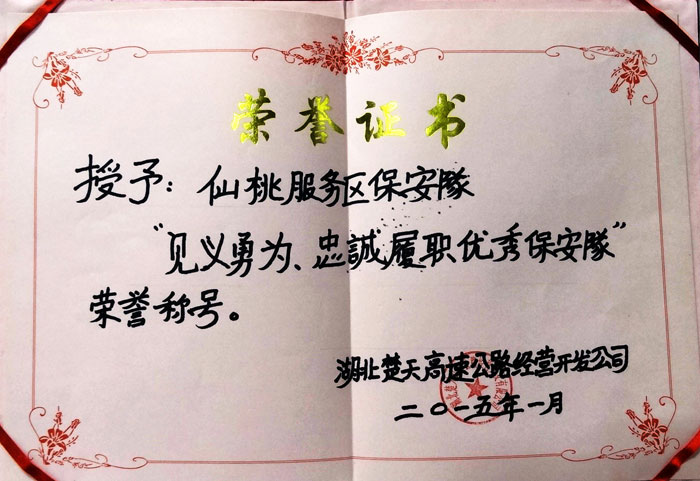 荣誉证书
授予：仙桃服务区保安隊
“见义勇为、忠誠履职优秀保安隊”
荣誉称号。
湖北楚天高速公路经营开发公司
二〇一五年一月